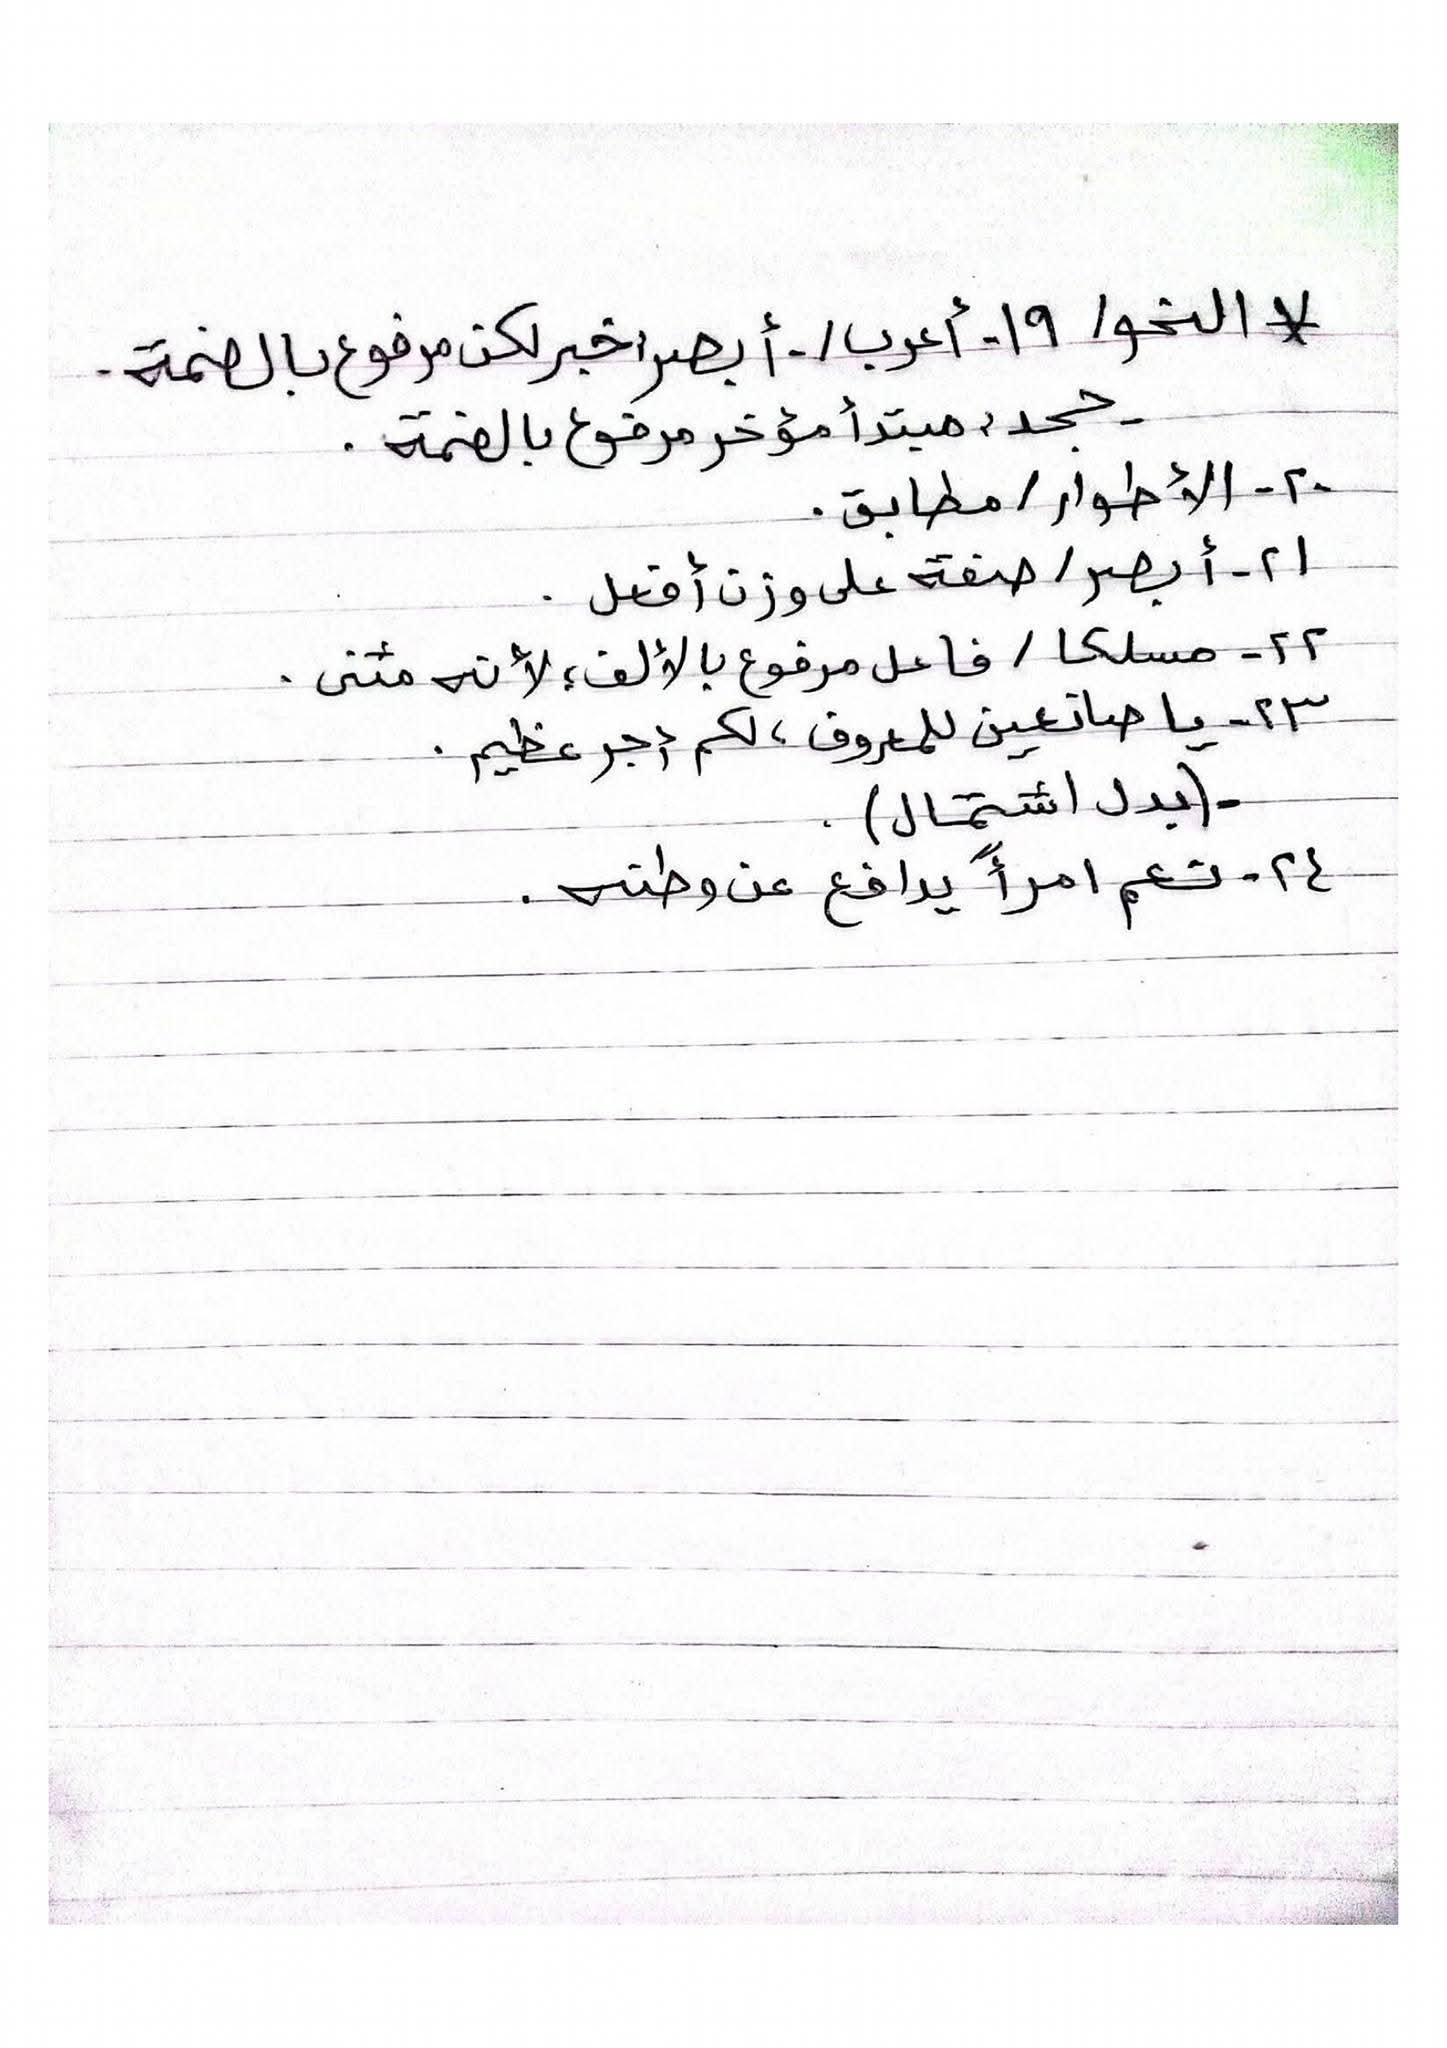 * النحو/ ١٩- أعرب/- أبصر: خبر لكن مرفوع بالضمة.
- حجد: مبتدأ مؤخر مرفوع بالضمة.
٢٠- الأطوار/ مطابق.
٢١- أبصر/ صفة على وزن أفعل.
٢٢- مسلكا/ فاعل مرفوع بالألف؛ لأنه مثنى.
٢٣- يا صانعين للمعروف، لكم أجر عظيم.
- (بدل اشتمال).
٢٤- نعم امرأً يدافع عن وطنه.